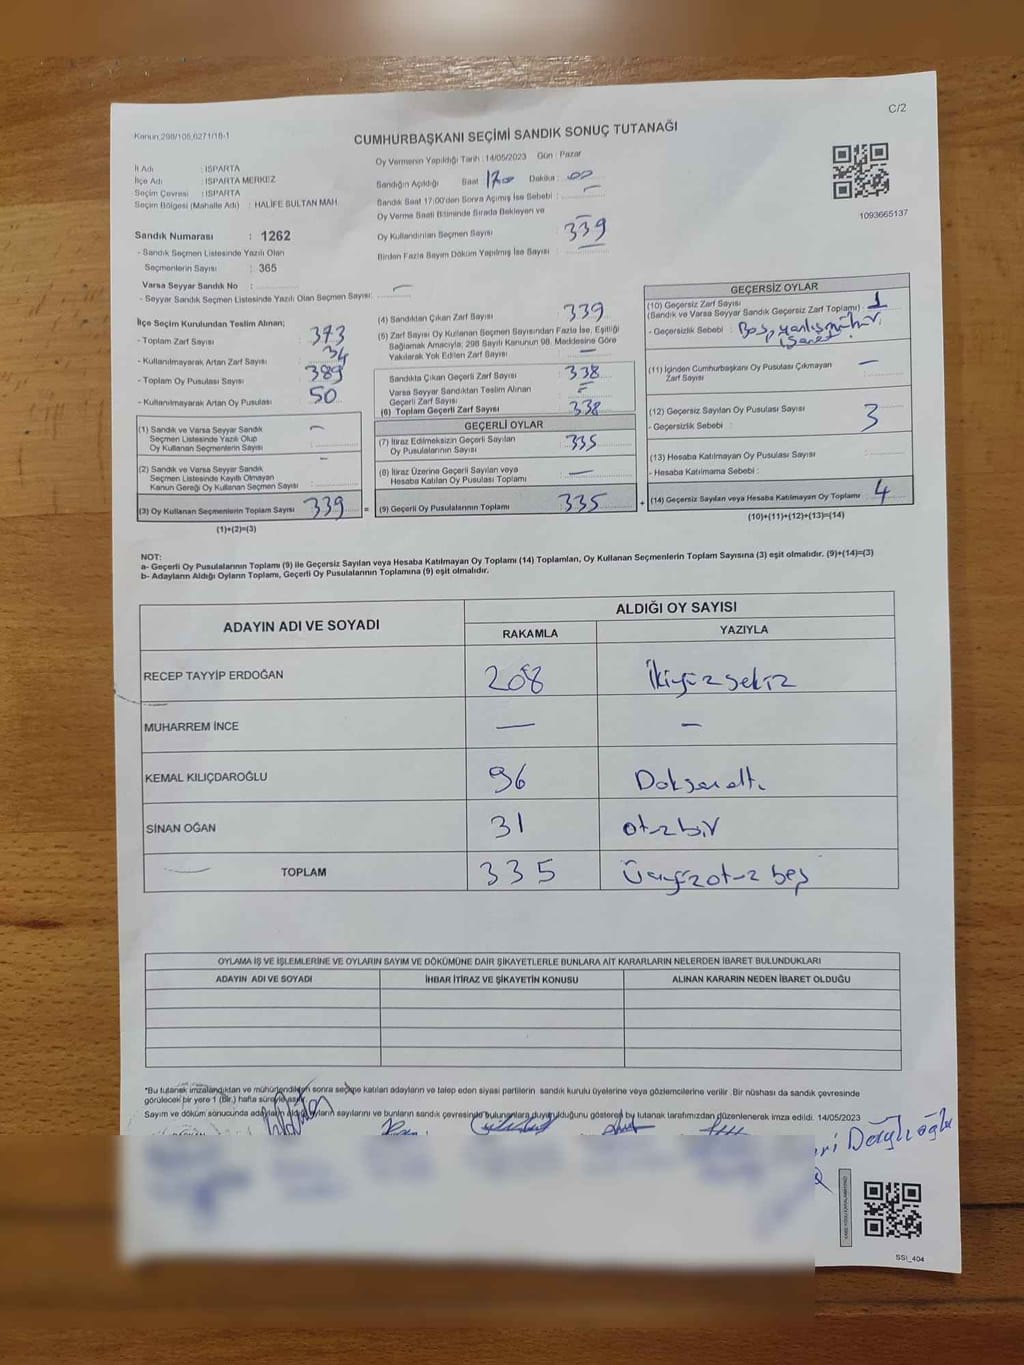 C/2
Kanun 298/105,6271/18-1
CUMHURBAŞKANI SEÇİMİ SANDIK SONUÇ TUTANAĞI
İl Adı : ISPARTA
İlçe Adı : ISPARTA MERKEZ
Seçim Çevresi : ISPARTA
Seçim Bölgesi (Mahalle Adı) : HALİFE SULTAN MAH.
Oy Vermenin Yapıldığı Tarih : 14/05/2023 Gün : Pazar
Sandığın Açıldığı Saat 17.00 Dakika : 00
Sandık Saat 17:00'den Sonra Açılmış İse Sebebi : —
Oy Verme Saati Bitiminde Sırada Bekleyen ve
Oy Kullandırılan Seçmen Sayısı : 339
Birden Fazla Sayım Döküm Yapılmış İse Sayısı :
1093665137
Sandık Numarası : 1262
- Sandık Seçmen Listesinde Yazılı Olan
Seçmenlerin Sayısı : 365
Varsa Seyyar Sandık No :
- Seyyar Sandık Seçmen Listesinde Yazılı Olan Seçmen Sayısı: —
İlçe Seçim Kurulundan Teslim Alınan;
- Toplam Zarf Sayısı : 373
- Kullanılmayarak Artan Zarf Sayısı : 34
- Toplam Oy Pusulası Sayısı : 389
- Kullanılmayarak Artan Oy Pusulası : 50
(1) Sandık ve Varsa Seyyar Sandık
Seçmen Listesinde Yazılı Olup
Oy Kullanan Seçmenlerin Sayısı : —
(2) Sandık ve Varsa Seyyar Sandık
Seçmen Listesinde Kayıtlı Olmayan
Kanun Gereği Oy Kullanan Seçmen Sayısı : —
(3) Oy Kullanan Seçmenlerin Toplam Sayısı 339 =
(1)+(2)=(3)
(4) Sandıktan Çıkan Zarf Sayısı : 339
(5) Zarf Sayısı Oy Kullanan Seçmen Sayısından Fazla İse, Eşitliği
Sağlamak Amacıyla; 298 Sayılı Kanunun 98. Maddesine Göre
Yakılarak Yok Edilen Zarf Sayısı : —
Sandıkta Çıkan Geçerli Zarf Sayısı : 338
Varsa Seyyar Sandıktan Teslim Alınan
Geçerli Zarf Sayısı : —
(6) Toplam Geçerli Zarf Sayısı : 338
GEÇERLİ OYLAR
(7) İtiraz Edilmeksizin Geçerli Sayılan
Oy Pusulalarının Sayısı : 335
(8) İtiraz Üzerine Geçerli Sayılan veya
Hesaba Katılan Oy Pusulası Toplamı : —
(9) Geçerli Oy Pusulalarının Toplamı : 335 +
GEÇERSİZ OYLAR
(10) Geçersiz Zarf Sayısı
(Sandık ve Varsa Seyyar Sandık Geçersiz Zarf Toplamı) : 1
- Geçersizlik Sebebi : Boş, yanlış mühür,
işaret
(11) İçinden Cumhurbaşkanı Oy Pusulası Çıkmayan
Zarf Sayısı : —
(12) Geçersiz Sayılan Oy Pusulası Sayısı : 3
- Geçersizlik Sebebi :
(13) Hesaba Katılmayan Oy Pusulası Sayısı :
- Hesaba Katılmama Sebebi :
(14) Geçersiz Sayılan veya Hesaba Katılmayan Oy Toplamı : 4
(10)+(11)+(12)+(13)=(14)
NOT:
a- Geçerli Oy Pusulalarının Toplamı (9) ile Geçersiz Sayılan veya Hesaba Katılmayan Oy Toplamı (14) Toplamları, Oy Kullanan Seçmenlerin Toplam Sayısına (3) eşit olmalıdır. (9)+(14)=(3)
b- Adayların Aldığı Oyların Toplamı, Geçerli Oy Pusulalarının Toplamına (9) eşit olmalıdır.
ADAYIN ADI VE SOYADI
ALDIĞI OY SAYISI
RAKAMLA YAZIYLA
RECEP TAYYİP ERDOĞAN 208 İkiyüzsekiz
MUHARREM İNCE — —
KEMAL KILIÇDAROĞLU 96 Doksanaltı
SİNAN OĞAN 31 otuzbir
TOPLAM 335 Üçyüzotuz beş
OYLAMA İŞ VE İŞLEMLERİNE VE OYLARIN SAYIM VE DÖKÜMÜNE DAİR ŞİKAYETLERLE BUNLARA AİT KARARLARIN NELERDEN İBARET BULUNDUKLARI
ADAYIN ADI VE SOYADI İHBAR İTİRAZ VE ŞİKAYETİN KONUSU ALINAN KARARIN NEDEN İBARET OLDUĞU
*Bu tutanak imzalandıktan ve mühürlendikten sonra seçime katılan adayların ve talep eden siyasi partilerin sandık kurulu üyelerine veya gözlemcilerine verilir. Bir nüshası da sandık çevresinde
görülecek bir yere 1 (Bir) hafta süreyle asılır.
Sayım ve döküm sonucunda adayların aldığı oyların sayılarını ve bunların sandık çevresinde bulunanlara duyurulduğunu gösteren bu tutanak tarafımızdan düzenlenerek imza edildi. 14/05/2023
SSI_404